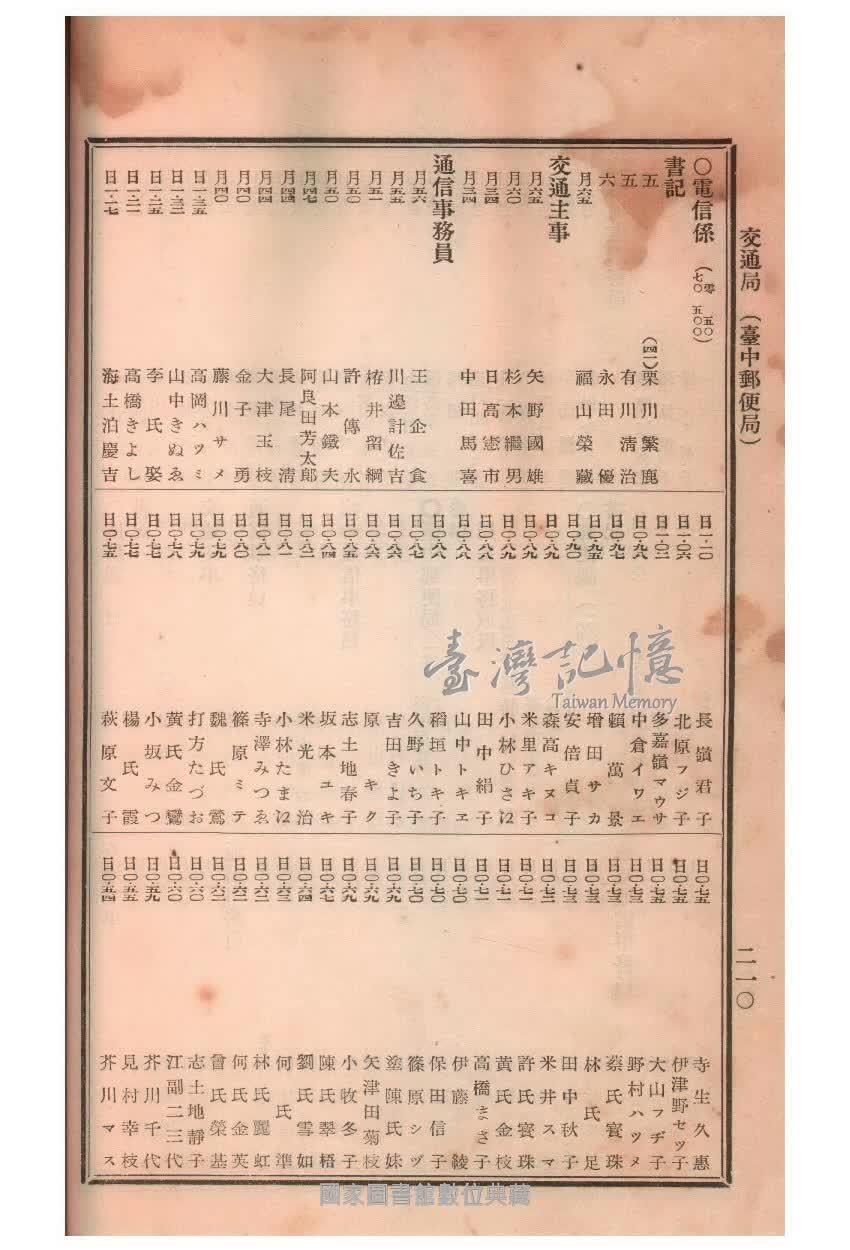 交通局 (臺中郵便局)
二一〇
〇電信係
書記
五 (四一) 栗川繁鹿
五 有川清治
六 永田優
月六五 福山榮藏
交通主事
月六五 矢野國雄
月六〇 杉本繼男
月三四 日高憲市
月三四 中田馬喜
通信事務員
月五六 王企食
月五五 川邉計佐吉
月五一 栫井留綱
月五〇 許傳水
月五〇 山本鐵夫
月四七 阿良田芳太郎
月四四 長尾清
月四四 大津玉枝
月四〇 金子勇
月四〇 藤川サメ
日一・三五 高岡ハツミ
日一・三二 山中きぬゑ
日一・三五 李氏娶
日一・二一 高橋きよし
日一・二七 海土泊慶吉
日一・一〇 長嶺君子
日一・〇六 北原フジ子
日一・〇三 多嘉嶺マウサ
日〇・九八 中倉イワエ
日〇・九七 賴萬景
日〇・九五 增田サカ
日〇・九〇 安倍貞子
日〇・八九 森高キヌコ
日〇・八九 米里アキ子
日〇・八九 小林ひさ江
日〇・八八 田中絹子
日〇・八八 山中トキヱ
日〇・八八 稻垣トキ子
日〇・八六 久野いち子
日〇・八六 吉田きよ子
日〇・八六 原キク
日〇・八五 志土地春子
日〇・八四 坂本ユキ
日〇・八二 米光治
日〇・八一 小林たま江
日〇・八一 寺澤みつゑ
日〇・八〇 篠原ミテ
日〇・七九 魏氏鶯
日〇・七九 打方たづお
日〇・七八 黃氏金鸞
日〇・七七 小坂みつ
日〇・七七 楊氏霞
日〇・七五 萩原文子
日〇・七五 寺生久惠
日〇・七五 伊津野セツ子
日〇・七五 大山フヂ子
日〇・七三 野村ハツメ
日〇・七三 蔡氏寶珠
日〇・七三 林氏足
日〇・七三 田中秋子
日〇・七二 米井スマ
日〇・七一 許氏寶珠
日〇・七一 黃氏金枝
日〇・七一 高橋まさ子
日〇・七〇 伊藤綾
日〇・七〇 保田信子
日〇・七〇 篠原シヅ
日〇・六九 塗陳氏妹
日〇・六九 矢津田菊枝
日〇・六九 小牧冬子
日〇・六七 陳氏翠梧
日〇・六四 劉氏雪如
日〇・六三 何氏準
日〇・六二 林氏麗虹
日〇・六二 何氏金英
日〇・六二 曾氏榮基
日〇・六〇 志土地靜子
日〇・六〇 江副二三代
日〇・五九 芥川千代
日〇・五五 見村幸枝
日〇・五四 芥川マス
臺灣記憶
Taiwan Memory
國家圖書館數位典藏